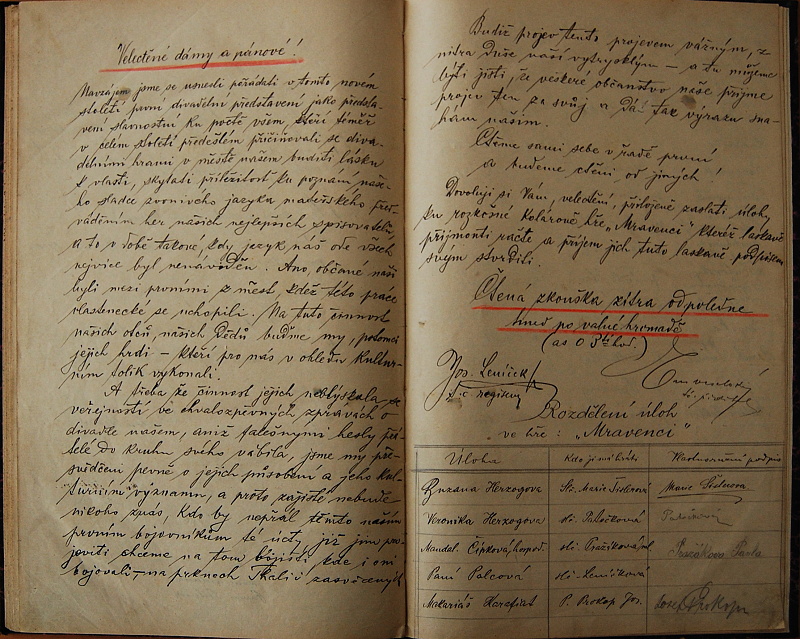 Velectěné dámy a pánové!
Navzájem jsme se usnesli pořádati v tomto novém
století první divadelní představení jako předsta-
vení slavnostní ku poctě všem, kteří téměř
v celém století předešlém přičiňovali se diva-
delními hrami v městě našem buditi lásku
k vlasti, skýtati příležitost ku poznání naše-
ho sladce zvonivého jazyka mateřského před-
váděním her našich nejlepších spisovatelů,
a to v době takové, kdy jazyk náš ode všech
nejvíce byl nenáviděn. Ano, občané naši
byli mezi prvními z měst, kdež této práce
vlastenecké se uchopili. Na tuto činnost
našich otců, našich dědů buďme my, potomci
jejich hrdi – kteří pro nás v ohledu kultur-
ním tolik vykonali.
A třeba že činnost jejich neblýskala se
veřejností ve chvalozpěvných zprávách o
divadle našem, aniž falešnými hesly přá-
telé do kruhu svého vábila, jsme my pře-
svědčeni pevně o jejich působení a jeho kul-
turním významu, a proto zajisté nebude
nikoho z nás, kdo by nepřál těmto našim
prvním bojovníkům té úcty, již jim pro-
jeviti chceme na tom bojišti, kde i oni
bojovali, – na prknech Thalii zasvěcených
Budiž projev tento projevem vážným, z
nitra duše naší vytrysklým – a tu můžeme
býti jisti, že veškeré občanstvo naše přijme
projev ten za svůj a dá taz výrazu sna-
hám našim.
Ctěme sami sebe v řadě první
a budeme ctěni od jiných!
Dovoluji si Vám, velectění, přiložené zaslati úlohy
ku rozkošné Kolárově hře „Mravenci“ kteréž laskavě
přijmouti račte a příjem jich tuto laskavě podpisem
svým stvrdili.
Čtená zkouška zítra odpoledne
hned po valné hromadě
(as o 3ti hod.)
Jos. Leníček
t. č. režisér
Rozdělení úloh
ve hře: „Mravenci“
Úloha Kdo jí má hráti Vlastnoruční podpis
Zuzana Herzogova Sl. Marie Tislerová Marie Tislerova
Veronika Herzogova sl. Patočková
Mandal. Čípková, hospod. sl. Pražáková ml. Pražáková Pavla
Paní Palcová sl. Leníčková
Makariáš Harafiát P. Prokop Jos. Josef Prokop